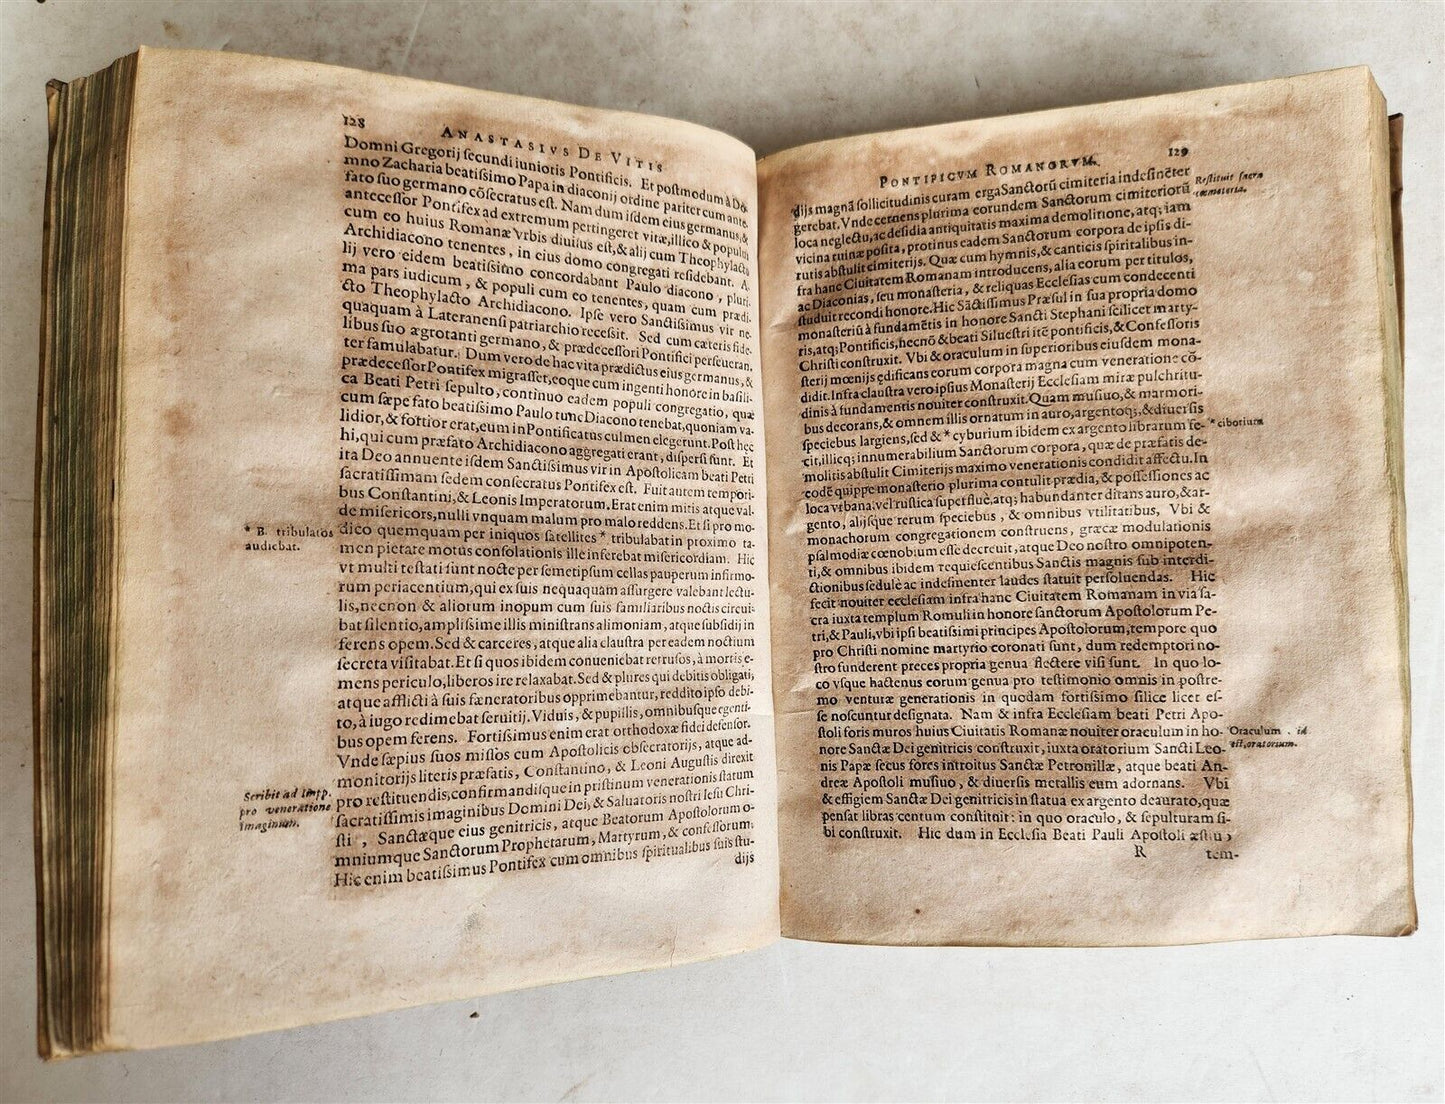 128
ANASTASIVS DE VITIS
Domni Gregorij secundi iunioris Pontificis. Et postmodum à Do-
mno Zacharia beatissimo Papa in diaconij ordine pariter cum ante
fato suo germano cōsecratus est. Nam dum isdem eius germanus, &
antecessor Pontifex ad extremum pertingeret vitæ, illico & populus
cum eo huius Romanæ Vrbis diuisus est, & alij cum Theophylacto
Archidiacono tenentes, in eius domo congregati residebant. A-
lij vero eidem beatissimo concordabant Paulo diacono, pluri-
ma pars iudicum, & populi cum eo tenentes, quam cum prædi-
cto Theophylacto Archidiacono. Ipse vero Sanctissimus vir ne-
quaquam à Lateranensi patriarchio recessit. Sed cum cæteris fide-
libus suo ægrotanti germano, & prædecessori Pontifici perseueran-
ter famulabatur. Dum vero de hac vita prædictus eius germanus, &
prædecessor Pontifex migrasset, eoque cum ingenti honore in basili-
ca Beati Petri sepulto, continuo eadem populi congregatio, quæ
cum sæpe fato beatissimo Paulo tunc Diacono tenebat, quoniam va-
lidior, & fortior erat, eum in Pontificatus culmen elegerunt. Post hec
hi, qui cum præfato Archidiacono aggregati erant, dispersi sunt. Et
ita Deo annuente isdem Sanctissimus vir in Apostolicam beati Petri
sacratissimam sedem consecratus Pontifex est. Fuit autem tempori-
bus Constantini, & Leonis Imperatorum. Erat enim mitis atque val-
de misericors, nulli vnquam malum pro malo reddens. Et si pro mo-
* B. tribulatos audiebat.
dico quemquam per iniquos satellites * tribulabat in proximo ta-
men pietate motus consolationis ille inferebat misericordiam. Hic
vt multi testati sunt nocte per semetipsum cellas pauperum infirmo-
rum periacentium, qui ex suis nequaquam assurgere valebant lectu-
lis, necnon & aliorum inopum cum suis familiaribus noctis circui-
bat silentio, amplissime illis ministrans alimoniam, atque subsidij in-
ferens opem. Sed & carceres, atque alia claustra per eadem noctium
secreta visitabat. Et si quos ibidem conueniebat retrusos, à mortis e-
mens periculo, liberos ire relaxabat. Sed & plures qui debitis obligati,
atque afflicti à suis fæneratoribus opprimebantur, reddito ipso debi-
to, à iugo redimebat seruitij. Viduis, & pupillis, omnibusque egenti-
bus opem ferens. Fortissimus enim erat orthodoxæ fidei defensor.
Vnde sæpius suos missos cum Apostolicis obsecratorijs, atque ad-
monitorijs literis præfatis, Constantino, & Leoni Augustis direxit
Scribit ad Impp. pro veneratione imaginum.
pro restituendis, confirmandisque in pristinum venerationis statum
sacratissimis imaginibus Domini Dei, & Saluatoris nostri Iesu Chri-
sti, Sanctæque eius genitricis, atque Beatorum Apostolorum o-
mniumque Sanctorum Prophetarum, Martyrum, & confessorum:
Hic enim beatissimus Pontifex cum omnibus spiritualibus suis stu-
dijs
129
PONTIFICVM ROMANORVM.
dijs magnā sollicitudinis curam erga Sanctorū cimiteria indesinēter
Restituit sacra cœmeteria.
gerebat. Vnde cernens plurima eorundem Sanctorum cimiteriorū
loca neglectu, ac desidia antiquitatis maxima demolitione, atq; iam
vicina ruinæ posita, protinus eadem Sanctorum corpora de ipsis di-
rutis abstulit cimiterijs. Quæ cum hymnis, & canticis spiritalibus in-
fra hanc Ciuitatem Romanam introducens, alia eorum per titulos,
ac Diaconias, seu monasteria, & reliquas Ecclesias cum condecenti
studuit recondi honore. Hic Sāctissimus Præsul in sua propria domo
monasteriū à fundamētis in honore Sancti Stephani scilicet marty-
ris, atq; Pontificis, hecnō & beati Siluestri itē pontificis, & Confessoris
Christi construxit. Vbi & oraculum in superioribus eiusdem mona-
sterij mœnijs ędificans eorum corpora magna cum veneratione cō-
didit. Infra claustra vero ipsius Monasterij Ecclesiam miræ pulchritu-
dinis à fundamentis nouiter construxit. Quam musiuo, & marmori-
bus decorans, & omnem illis ornatum in auro, argentoq;, & diuersis
speciebus largiens, sed & * cyburium ibidem ex argento librarum fe-
* ciborium
cit, illicq; innumerabilium Sanctorum corpora, quæ de præfatis de-
molitis abstulit Cimiterijs maximo venerationis condidit affectu. In
codē quippe monasterio plurima contulit prædia, & possessiones ac
loca vrbana: vel rustica superfluè, atq; habundanter ditans auro, & ar-
gento, alijsque rerum speciebus, & omnibus vtilitatibus, Vbi &
monachorum congregationem construens, græcæ modulationis
psalmodiæ cœnobium esse decreuit, atque Deo nostro omnipoten-
ti, & omnibus ibidem requiescentibus Sanctis magnis sub interdi-
ctionibus sedulè ac indesinenter laudes statuit persoluendas. Hic
fecit nouiter ecclesiam infra hanc Ciuitatem Romanam in via sa-
cra iuxta templum Romuli in honore sanctorum Apostolorum Pe-
tri, & Pauli, vbi ipsi beatissimi principes Apostolorum, tempore quo
pro Christi nomine martyrio coronati sunt, dum redemptori no-
stro funderent preces propria genua flectere visi sunt. In quo lo-
co vsque hactenus eorum genua pro testimonio omnis in postre-
mo venturæ generationis in quodam fortissimo silice licet es-
se noscuntur designata. Nam & infra Ecclesiam beati Petri Apo-
stoli foris muros huius Ciuitatis Romanæ nouiter oraculum in ho-
Oraculum, id est, oratorium.
nore Sanctæ Dei genitricis construxit, iuxta oratorium Sancti Leo-
nis Papæ secus fores introitus Sanctæ Petronillæ, atque beati An-
dreæ Apostoli musiuo, & diuersis metallis eum adornans. Vbi
& effigiem Sanctæ Dei genitricis in statua ex argento deaurato, quæ
pensat libras centum constituit: in quo oraculo, & sepulturam si-
bi construxit. Hic dum in Ecclesia Beati Pauli Apostoli æstiuo
R
tem-